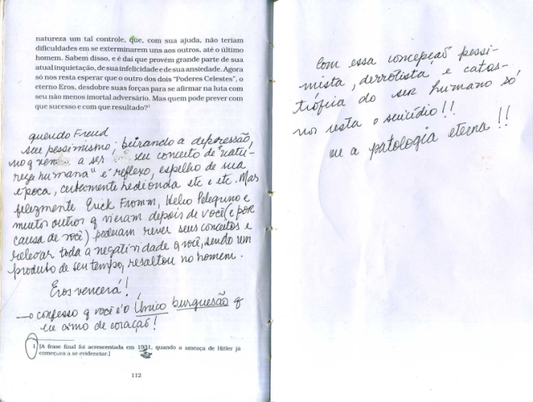 natureza um tal controle, que, com sua ajuda, não teriam
dificuldades em se exterminarem uns aos outros, até o último
homem. Sabem disso, e é daí que provém grande parte de sua
atual inquietação, de sua infelicidade e de sua ansiedade. Agora
só nos resta esperar que o outro dos dois "Poderes Celestes", o
eterno Eros, desdobre suas forças para se afirmar na luta com
seu não menos imortal adversário. Mas quem pode prever com
que sucesso e com que resultado?¹
querido Freud
seu pessimismo; beirando a depressão,
a ser seu conceito de "natu-
reza humana" é reflexo, espelho de sua
época, certamente hedionda etc e etc. Mas
felizmente Erick Fromm, Helio Pelegrino e
muitos outros q vieram depois de você (e por
causa de você) puderam rever seus conceitos e
relevar toda a negatividade q você, sendo um
produto de seu tempo, resaltou no homem.
Eros vencerá!
→ o confesso q você é o Único burguesão q
eu amo de coração!
1 [A frase final foi acrescentada em 1931, quando a ameaça de Hitler já
começava a se evidenciar.]
112
Com essa concepção pessi-
mista, derrotista e catas-
trófica do ser humano só
nos resta o suicídio!!
ou a patologia eterna!!